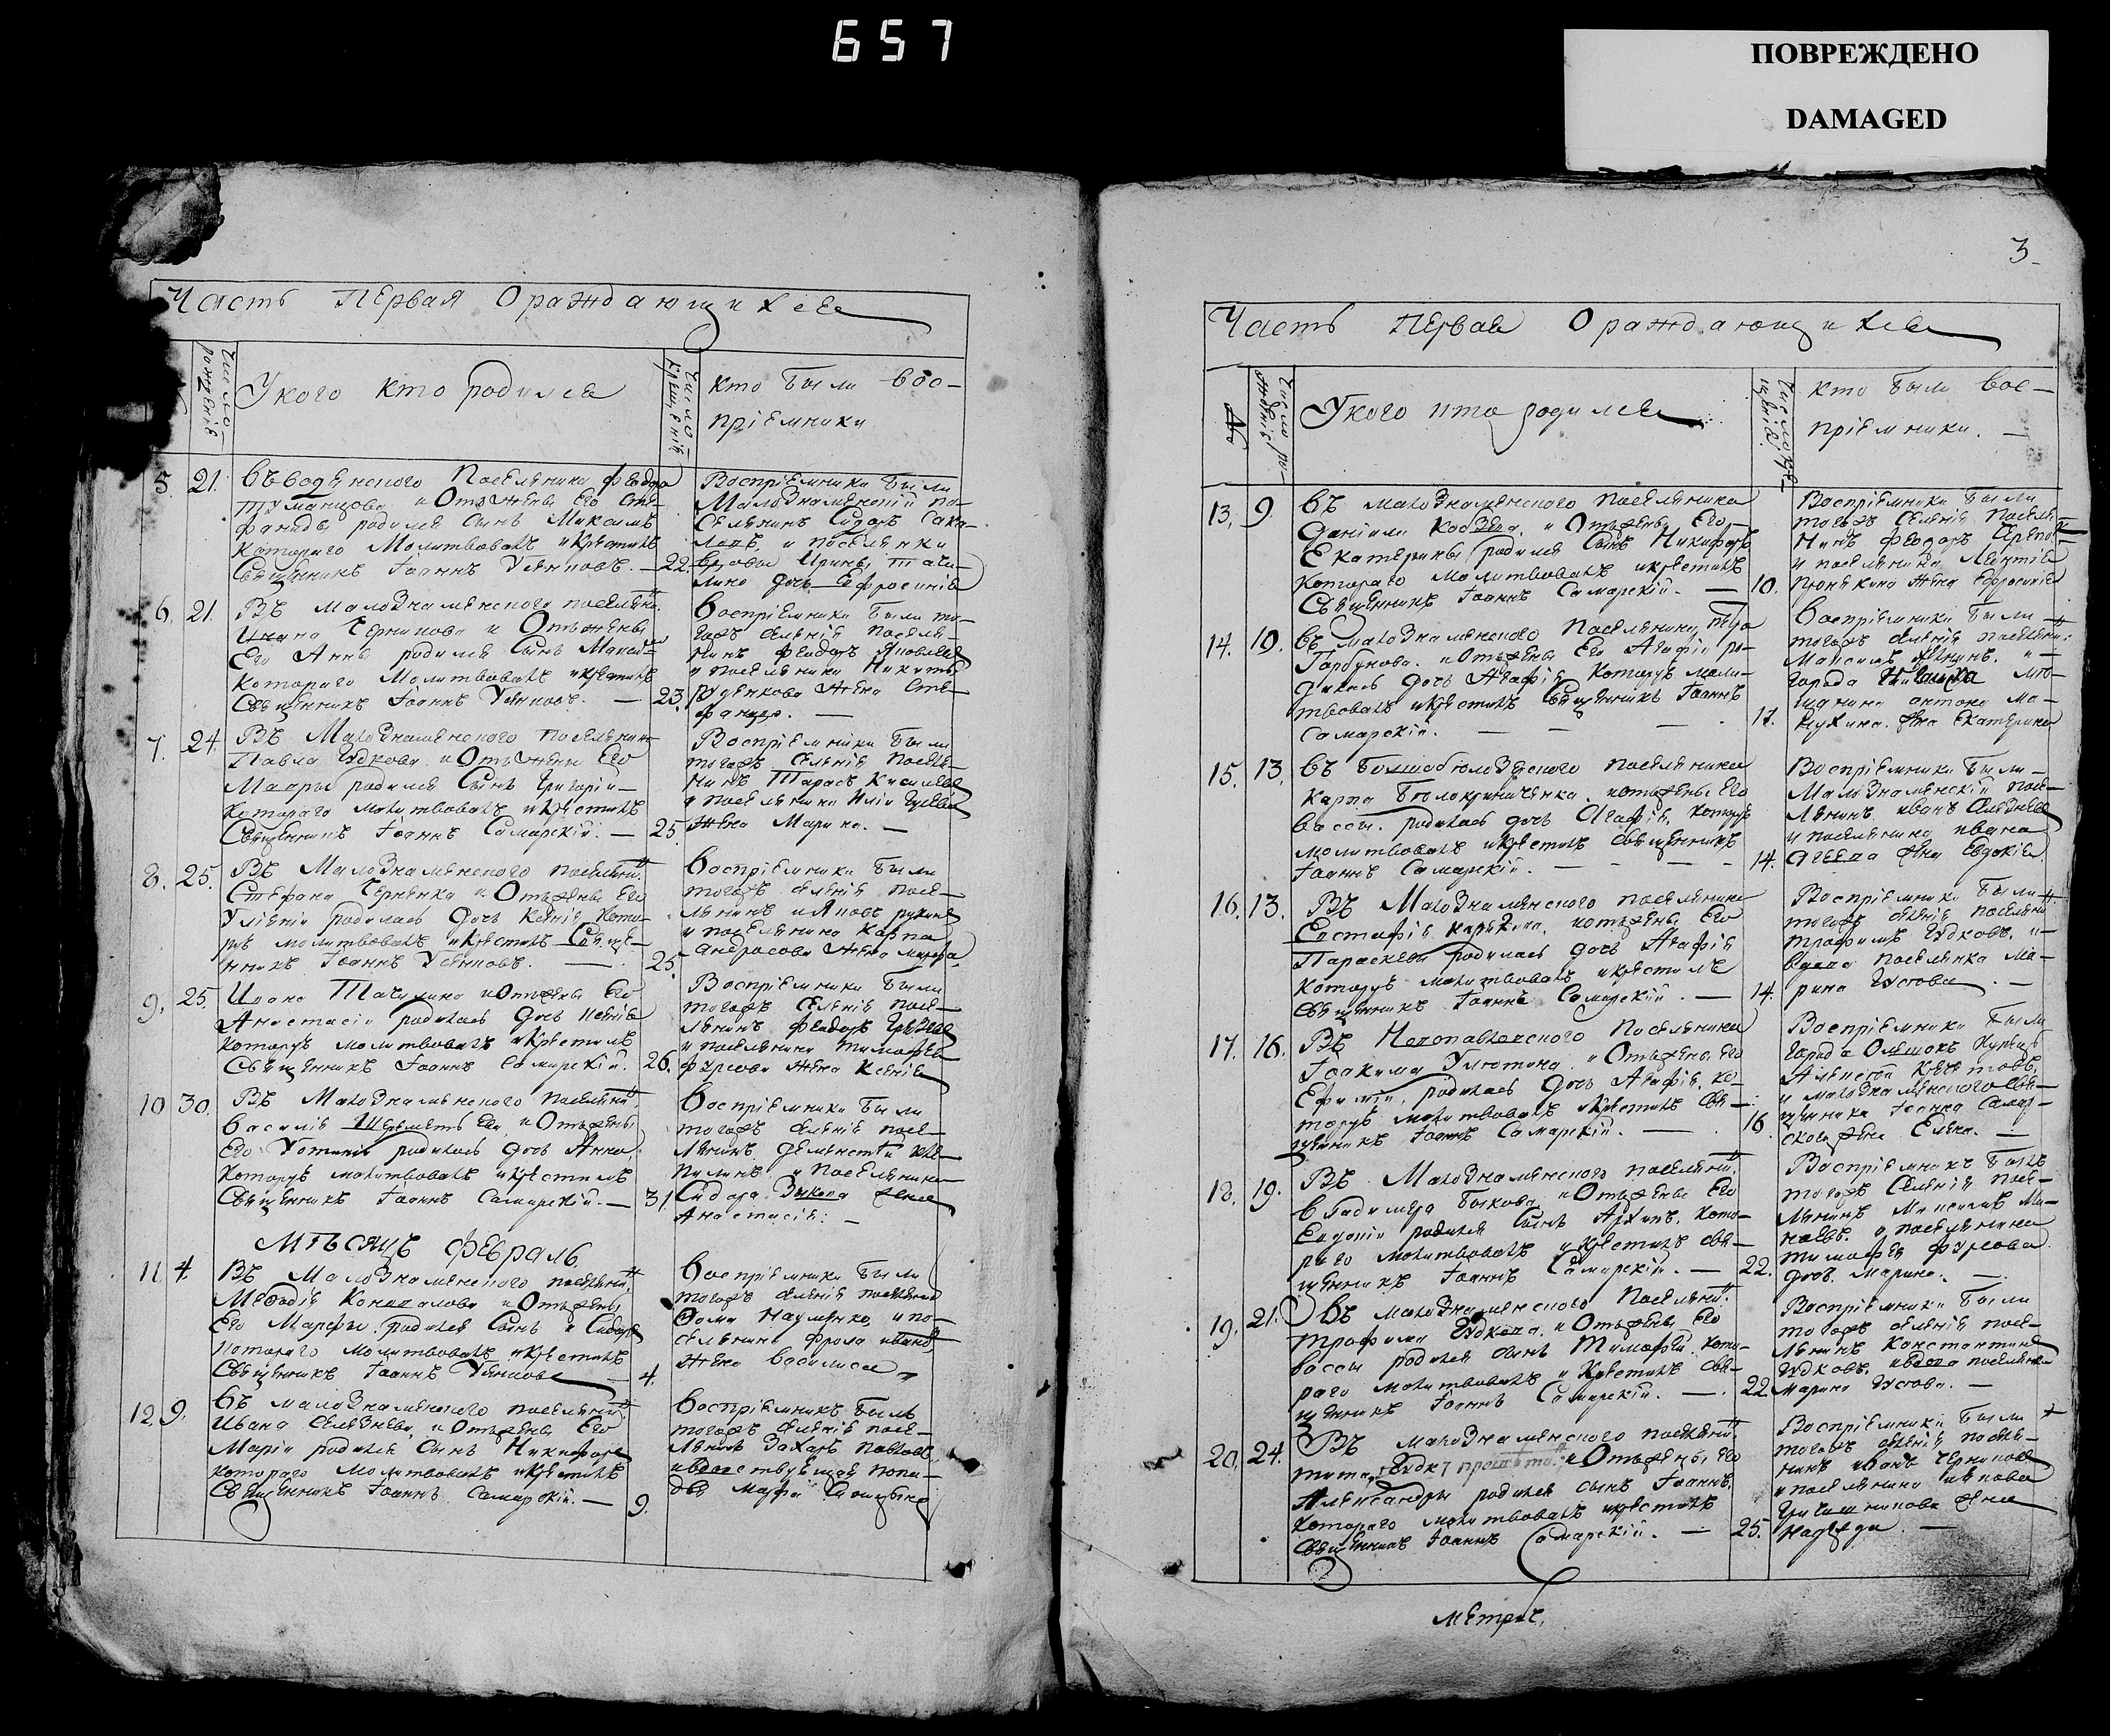 657
ПОВРЕЖДЕНО
DAMAGED
Часть Первая О раждающихся
Число рожденія
У кого кто родился
Число крещенія
кто были вос-
пріемники
5. 21.
поселянина Федора
Туманцова и Отъ жены Его Сте-
фаниды родился Сынъ Максимъ
котораго Молитвовалъ и крестилъ
Священникъ Іоаннъ Устиновъ. —
22.
Воспріемники были
Малознаменскій по-
селянинъ Сидоръ Сака-
и поселянки
вдовы Ирины
дочь Ефросинія
6. 21.
Въ Малознаменскаго поселяни:
Ивана Черникова и Отъ жены
Его Анны родился Сынъ
котораго Молитвовалъ и крестилъ
Священникъ Іоаннъ Устиновъ. —
23.
Воспріемники были то-
гожъ селенія поселя-
нинъ Федоръ Яковлевъ
и поселянина Никиты
жена Сте-
фанида. —
7. 24.
Въ Малознаменского поселянина
Павла Гудкова и Отъ жены Его
Мавры родился Сынъ Григорій —
котораго молитвовалъ и крестилъ
Священникъ Іоаннъ Самарскій. —
25.
Воспріемники были
тогожъ селенія поселя-
нинъ Тарасъ Киселевъ
и поселянина Иліи Гусева
жена Марина. —
8. 25.
Въ Малознаменскаго поселяни:
Стефана и Отъ жены Его
Уліянія родилась дочь Ксенія кото-
рую молитвовалъ и крестилъ Свяще-
нникъ Іоаннъ Устиновъ. —
25.
Воспріемники были
тогожъ селенія посе-
лянинъ
и поселянина Карпа
Андросова жена Марфа
9. 25.
Ивана и Отъ жены Его
Анастасіи родилась дочь Ксенія
которую молитвовалъ и крестилъ
Священникъ Іоаннъ Самарскій.
26.
Воспріемники были
тогожъ селенія посе-
лянинъ Федоръ
и поселянина Тимофея
Фурсова жена Ксенія
10 30.
Въ Малознаменскаго поселяни:
Василія и Отъ жены
Его родилась дочь Анна,
которую молитвовалъ и крестилъ
Священникъ Іоаннъ Самарскій. —
31.
Воспріемники были
тогожъ селенія посе-
лянинъ
и поселянина
Сидора Зыкова жена
Анастасія: —
Мѣсяцъ Февраль
11. 4.
Въ Малознаменскаго поселяни:
Мефодія Коновалова и Отъ жены
Его Марфы родился Сынъ Сидоръ
котораго молитвовалъ и крестилъ
Священникъ Іоаннъ Устиновъ —
4.
Воспріемники были
тогожъ селенія поселянинъ
Фома Науменко, и по-
селянина Фрола
жена Василиса
12. 9.
Въ малознаменскаго поселяни:
Ивана Селезнева, и Отъ жены Его
Маріи родился Сынъ Никифоръ
котораго Молитвовалъ и крестилъ
Священникъ Іоаннъ Самарскій. —
9.
Воспріемникъ былъ
тогожъ селенія посе-
лянинъ Захаръ
вдовствующая попа-
дья Марфа
3
Часть Первая О раждающихся
№
Число ро-
жденія
У кого кто родился
Число кре-
щенія
кто были вос-
пріемники. —
13. 9.
Въ малознаменскаго поселянина
Даніила Кобзева, и Отъ жены Его
Екатерины родился Сынъ Никифоръ
котораго молитвовалъ и крестилъ
Священникъ Іоаннъ Самарскій. —
10.
Воспріемники были
тогожъ селенія поселя-
нинъ Федоръ
и поселянина Леонтія
жена Ефросинія
14. 10.
Въ малознаменскаго поселянина
Горбунова. и Отъ жены Его Агафіи ро-
дилась дочь Агафія Которую моли-
твовалъ и крестилъ Священникъ Іоаннъ
Самарскій. —
11.
Воспріемники были —
тогожъ селенія поселяни:
Максимъ
города мѣ-
щанина Антона Ма-
жена Екатерина
15. 13.
Въ поселянина
Карпа и Отъ жены Его
Вассы. родилась дочь Агафія, которую
молитвовалъ и крестилъ священникъ
Іоаннъ Самарскій. —
14.
Воспріемники были —
Малознаменскій посе-
лянинъ Иванъ Селезневъ
и поселянина Ивана
Агеева жена Евдокія.
16. 13.
Въ Малознаменскаго поселянина
Евстафія и Отъ жены Его
Параскевы родилась дочь Агафія
которую молитвовалъ и крестилъ
священникъ Іоаннъ Самарскій. —
14.
Воспріемники были
тогожъ селенія поселяни:
Трофимъ Гудковъ. и —
вдова поселянка Ма-
рина Гусова. —
17. 16.
Въ Новопавловского поселянина
Іоакима и Отъ жены Его
Ефиміи, родилась дочь Агафія, ко-
торую молитвовалъ и крестилъ свя-
щенникъ Іоаннъ Самарскій. —
16.
Воспріемники были
города купецъ
Алексей
и малознаменскаго свя-
щенника Іоанна Самар-
скаго жена Елена. —
18. 19.
Въ Малознаменскаго поселяни:
Владимера Быкова и Отъ жены Его
Евдокіи родился сынъ Архипъ, кото-
раго молитвовалъ и крестилъ свя-
щенникъ Іоаннъ Самарскій. —
22.
Воспріемникъ былъ
тогожъ селенія посе-
лянинъ Максимъ
и поселянина
Тимофея Фурсова
дочь Марина. —
19. 21.
Въ малознаменскаго поселяни:
Трофима Гудкова, и Отъ жены Его
Вассы родился сынъ Тимофей, кото-
раго молитвовалъ и крестилъ свя-
щенникъ Іоаннъ Самарскій. —
22.
Воспріемники были
тогожъ селенія посе-
лянинъ Константинъ
Гудковъ. и вдова поселянка
Марина Гусова. —
20. 24.
Въ малознаменскаго поселяни:
и Отъ жены Его
Александры родился сынъ Іоаннъ.
котораго молитвовалъ и крестилъ
Священникъ Іоаннъ Самарскій. —
25.
Воспріемники были
тогожъ селенія поселя-
нинъ Иванъ Черниковъ
и поселянина Якова
жена
Надежда. —
Метрич.